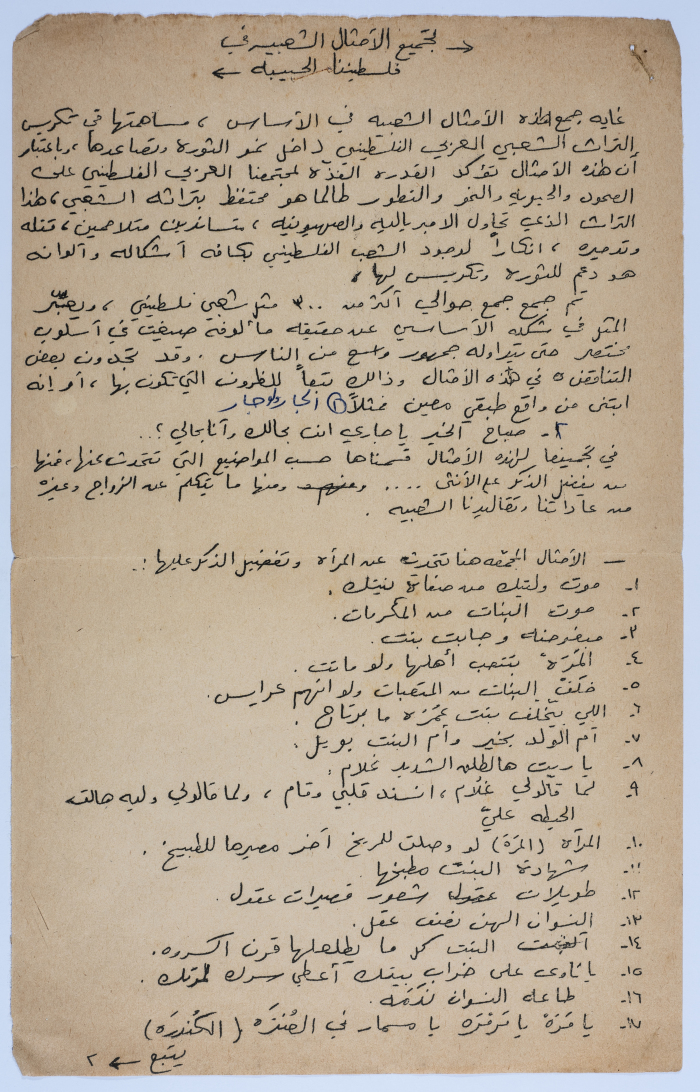 → لتجميع الأمثال الشعبيه في
فلسطيننا الحبيبه ←
غايه جمع هذه الأمثال الشعبيه في الأساس ، مساهمتها في تكريس
التراث الشعبي العربي الفلسطيني داخل نمو الثورة وتصاعدها، وباعتبار
أن هذه الأمثال تؤكد القدره الفذّه لمجتمعنا العربي الفلسطيني على
الصمود والحيويه والنمو والتطور طالما هو محتفظ بتراثه الشعبي، هذا
التراث الذي تحاول الامبرياليه والصهيونيه ، متساندين متلاحمين ، قتله
وتدميره ، انكاراً لوجود الشعب الفلسطيني بكافه أشكاله وألوانه
هو دعم للثوره وتكريس لها ،
تم جمع جمع حوالي أكثر من ٣٠٠ مثل شعبي فلسطيني ، ويعبّر
المثل في شكله الأساسي عن حقيقه مألوفة صيغت في أسلوب
مختصر حتى يتداوله جمهور واسع من الناس . وقد تجدون بعض
التناقض في هذه الأمثال وذالك تبعاً للظروف التي تكون بها ، أو إنه
ابتنى من واقع طبقي معين فمثلاً ١ الجار ولو جار
٢- صباح الخير يا جاري انت بحالك وأنا بحالي ؟..
في تجميعنا لهذه الأمثال قسمناها حسب المواضيع التي تتحدث عنها، فمنها
من يفضل الذكر على الأنثى .... ومنها ما يتكلم عن الزواج وغيره
من عاداتنا وتقاليدنا الشعبيه .
— الأمثال المجمّعه هنا تتحدث عن المرأه وتفضيل الذكر عليها :.
١- موت وليتك من صفاة نيتك .
٢- موت البنات من المكرمات .
٣- مبغوضه وجابت بنت .
٤- المَرَة بتتعب أهلها ولو ماتت .
٥- خلفة البنات من المتعبات ولو انهم عرايس .
٦- اللي بيخلف بنت عمره ما برتاح .
٧- أم الولد بخير وأم البنت بويل .
٨- يا ريت هالطلق الشديد غلام .
٩- لما قالولي غلام ، انسند قلبي وقام ، ولما قالولي وليه هالت
الحيطه عليّ
١٠- المرأه (المَرَة) لو وصلت للمريخ آخر مصيرها للطبيخ .
١١- شهادة البنت مطبخها
١٢- طويلات شعور قصيرات عقول .
١٣- النسوان الهن نصف عقل .
١٤- البنت كل ما يطلعلها قرن اكسروه .
١٥- يا ناوي على خراب بيتك أعطي سرك لمرتك .
١٦- طاعه النسوان نَدَمَه .
١٧- يا مَرَة يا مَرمَرَه يا مسمار في الصُنْدَرَه (الكُنْدَرَه)
يتبع ← ٢